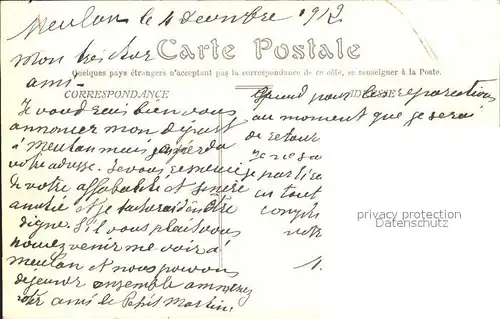 Meulan le 4 decembre 1912
Mon très cher
ami
Carte Postale
Quelques pays étrangers n'acceptant pas la correspondance de ce côté, se renseigner à la Poste.
CORRESPONDANCE
ADRESSE
Je voudrais bien vous
annoncer mon départ
à Meulan mais
votre adresse. Je vous remercie
de votre affabilité et sincère
amitié et je
digne. S'il vous plait vous
pouvez venir me voir à
meulan et nous pouvons
déjeuner ensemble
votre ami le Petit Martin.
Quand pour les reparations
au moment que je serai
de retour
je
en tout
compli
privacy protection
Datenschutz